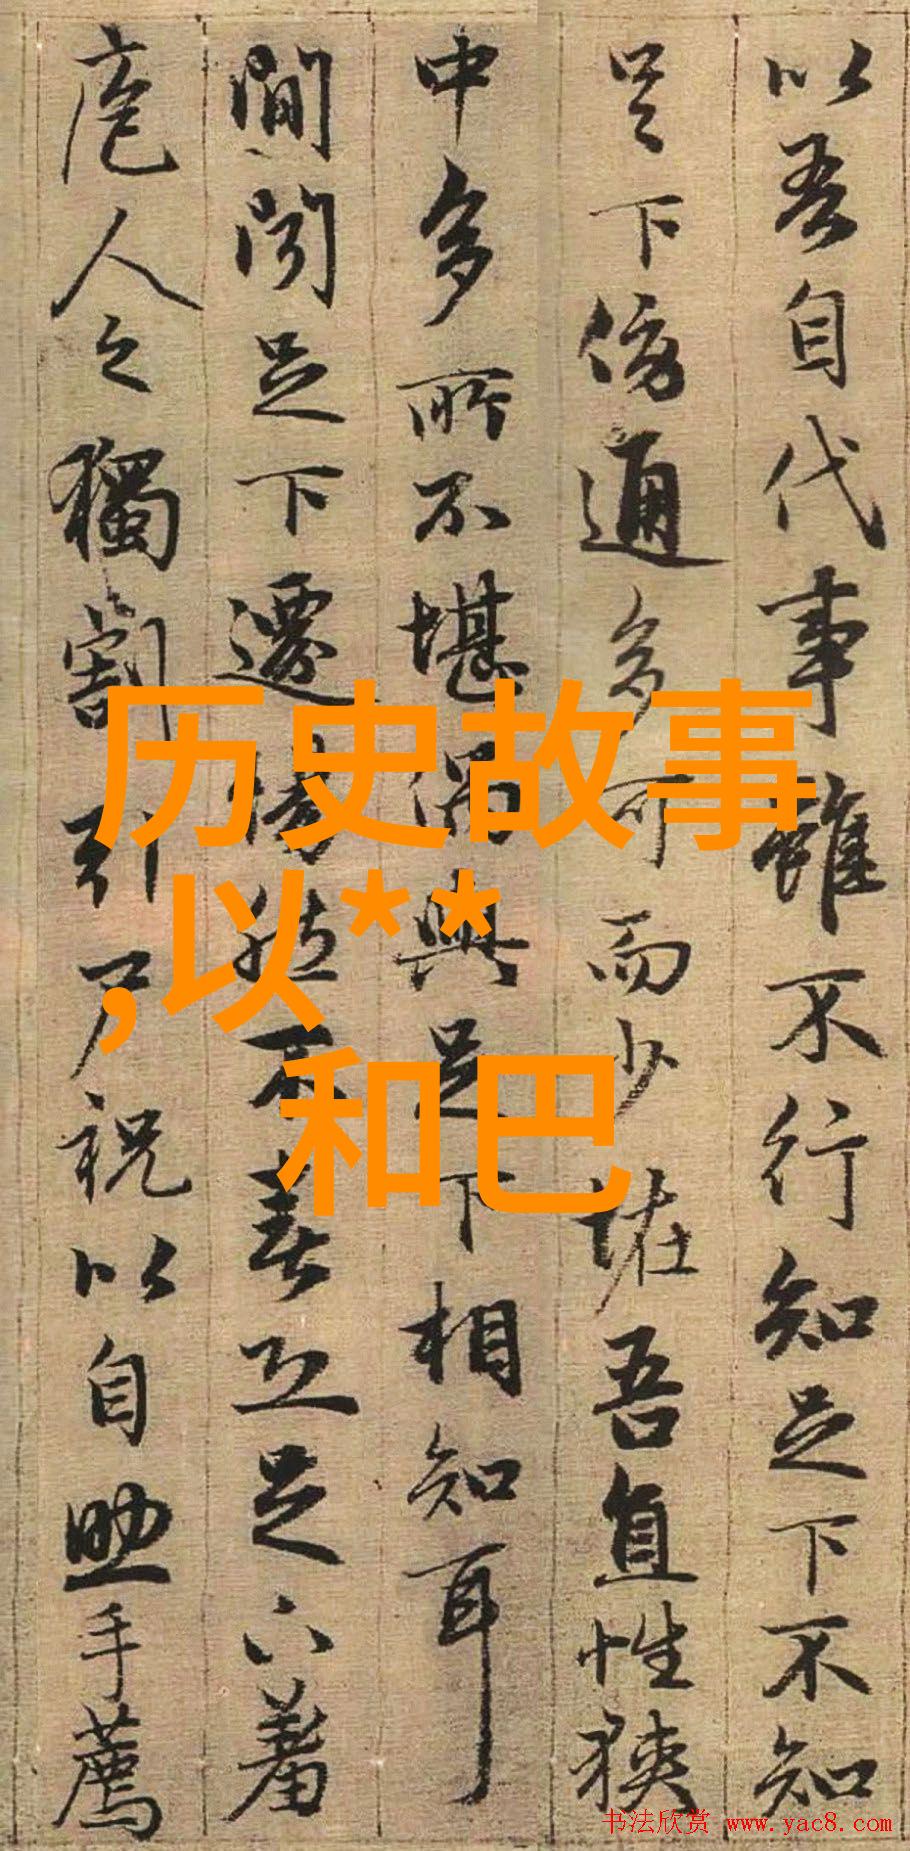 以吾自代事雖不行知足下不知
足下傍通多可而少怪吾直性狹
中多所不堪偶與足下相知耳
間聞足下遷惕然不喜恐足下羞
庖人之獨割引尸祝以自助手薦
历史故事
,以**
和巴
书法欣赏 www.yac8.com